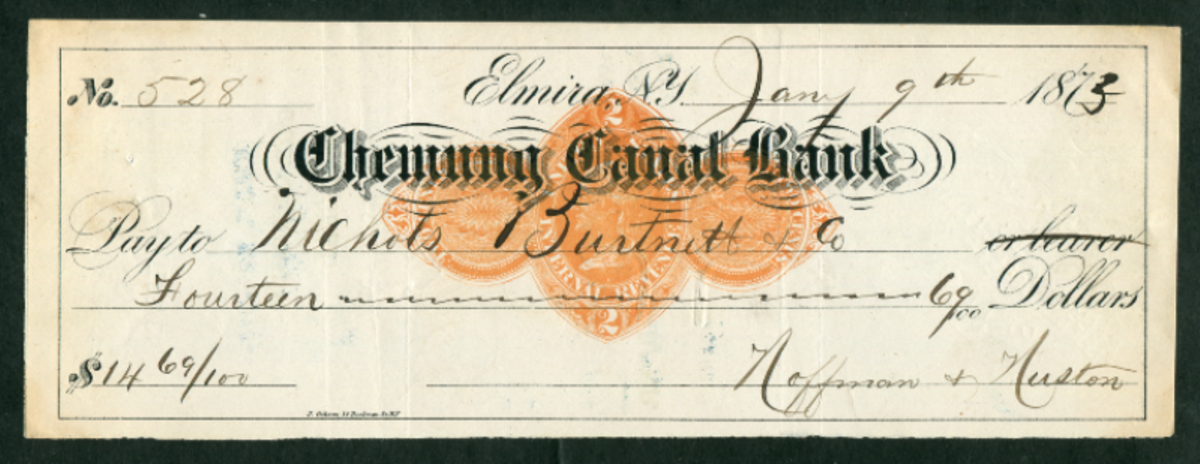 No. 528 Elmira, N.Y. Jany 9th 1873
Chemung Canal Bank
Pay to Nichols Burtnett & Co or bearer
Fourteen 69/00 Dollars
$14 69/100 Hoffman & Huston
2
2